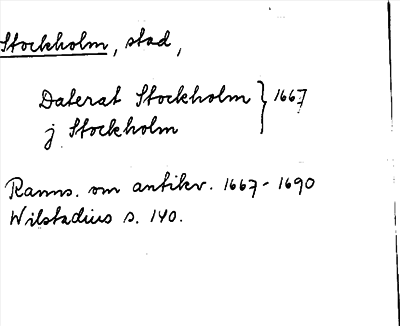 Stockholm, stad,
Daterat Stockholm } 1667
j Stockholm
Ranns. om antikv. 1667-1690
Wilstadius s. 140.